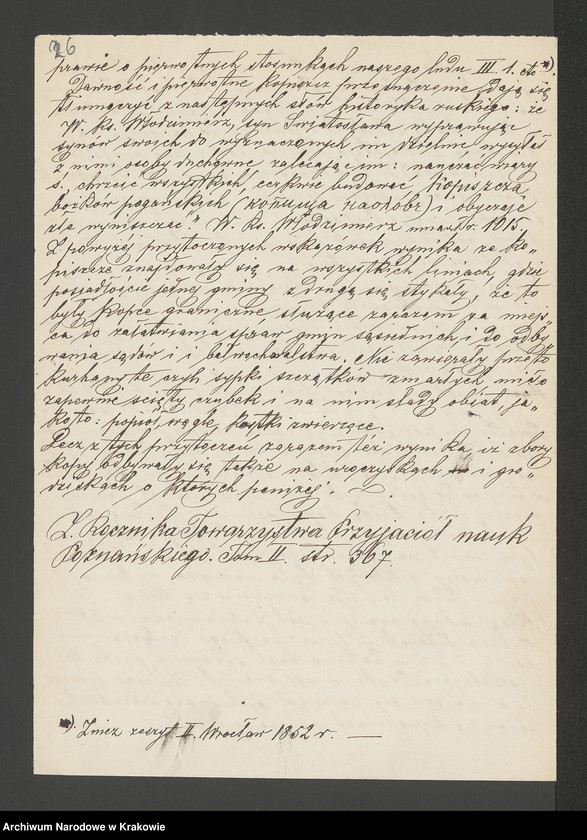 26
prawie o pierwotnych stosunkach naszego ludu III. 1. cto *).
Dawność i pierwotne kopiszcz przeznaczenie dają się
tłumaczyć z następnych słów historyka ruskiego: że
W. Ks. Włodzimierz, syn Światosława wyprawując
synów swoich do wyznaczonych im dzielnic wysyłał
z nimi osoby duchowne zalecając im: nauczać wiary
ś., chrzcić wszystkich, cerkwie budować,
bożków pogańskich i obyczaje
złe wyniszczać." W. Ks. Włodzimierz umarł r. 1015.
Z powyżej przytoczonych wskazówek wynika że ko„
piszcze znajdowały się na wszystkich liniach, gdzie
posiadłości jednej gminy z drugą się stykały, że to
były kopce graniczne służące zarazem za miejs„
ca do załatwiania spraw gmin sąsiednich i do odby„
wania sądów i i bałwochwalstwa. Nie zawierały przeto
kurhany te czyli sypki szczątków zmarłych miało
zapewne ścięty czubek i na nim ślady obiat, ja„
koto: popiół, węgle, kostki zwierzęce.
Lecz z tych przytoczeń zarazem też wynika, iż zbory
kopy odbywały się także na uroczyskach i gro„
dziskach o których poniżej.
Z Rocznika Towarzystwa Przyjaciół nauk
Poznańskiego. Tom II. str. 367.
*). Znicz zeszyt II. Wrocław 1852 r. —
Archiwum Narodowe w Krakowie